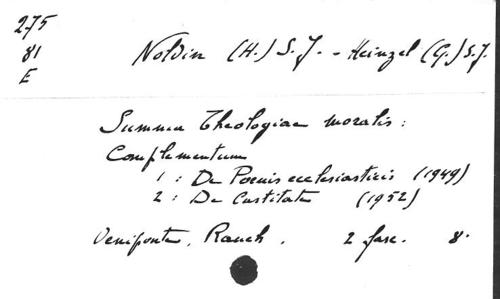 275
81
E
Noldin (H.) S.J. - Heinzel (G.) S.J.
Summa Theologiae moralis :
Complementum
1 : De Poenis ecclesiasticis (1949)
2 : De Castitate (1952)
Oeniponte, Rauch. 2 fasc. 8°